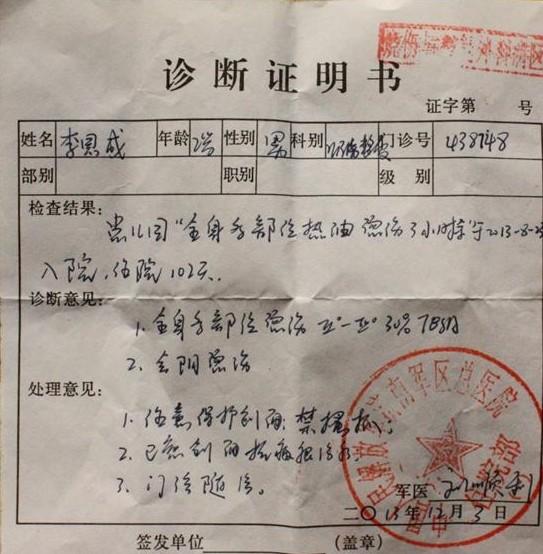 诊断证明书
证字第 号
姓名 李恩成 年龄 2岁 性别 男 科别 门诊号 438748
部别 职别 级别
检查结果:
患儿因"全身多部位热油烫伤3小时"于2013-8-23
入院,住院102天.
诊断意见:
1. 全身多部位烫伤 Ⅱ°-Ⅲ° 30% TBSA
2. 会阴烫伤
处理意见:
1. 注意保护创面,禁搔抓;
2. 已愈创面抗疤痕治疗.
3. 门诊随诊。
军医
二〇13年12月3日
签发单位 (盖章)